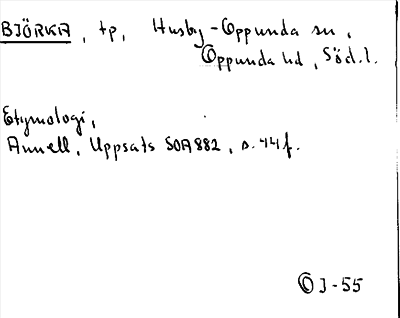 BJÖRKA, tp, Husby-Oppunda sn,
Oppunda hd, Söd.l.
Etymologi,
Annell, Uppsats SOA 882, s. 44 f.
OJ-55